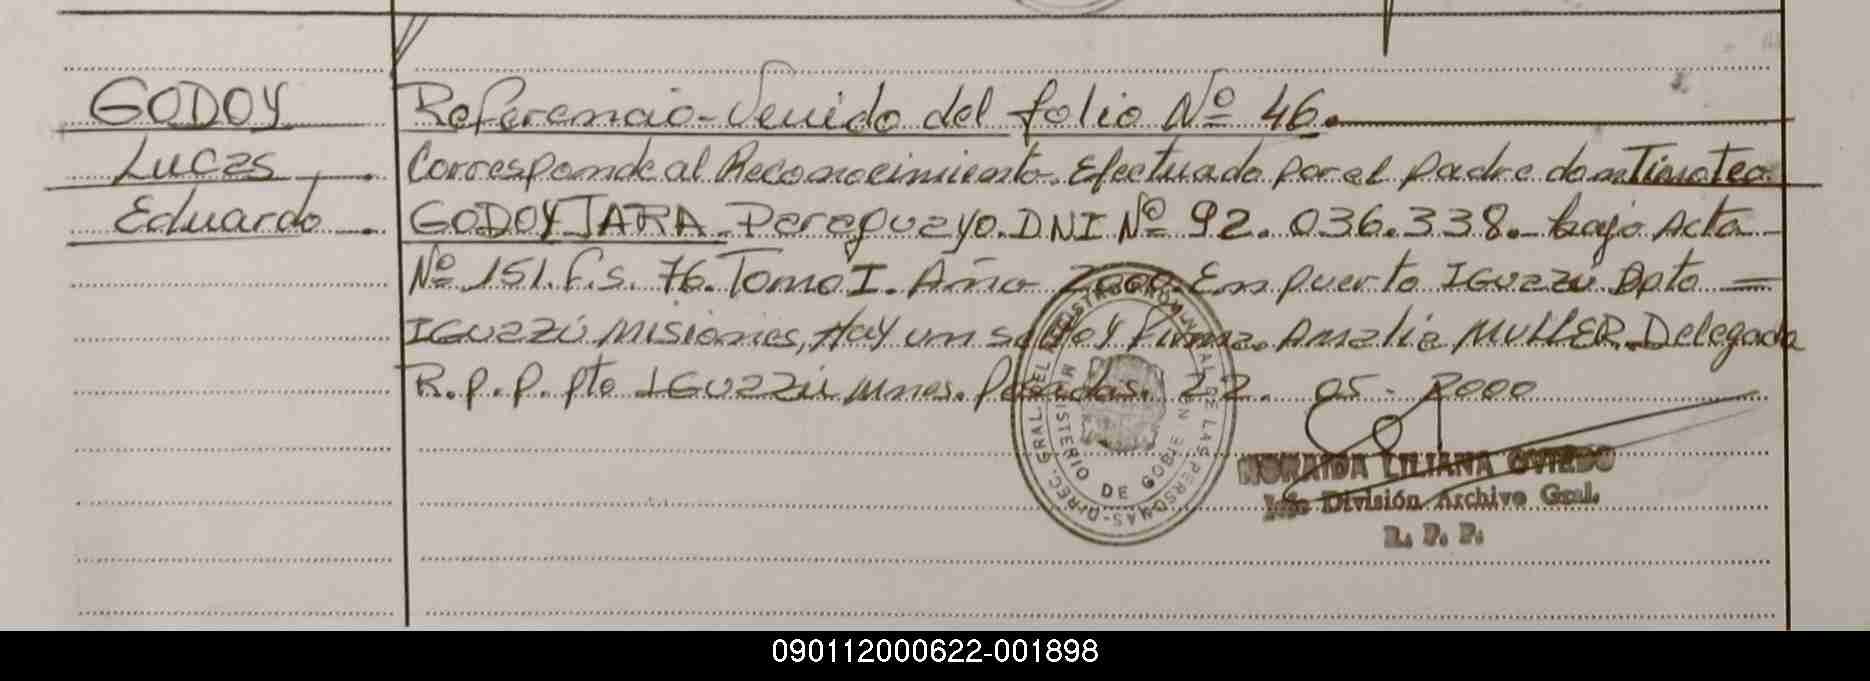 GODOY
Lucas
Eduardo
Referencia-Venido del folio Nº 46.
Corresponde al Reconocimiento. Efectuado por el padre don Timoteo
GODOY JARA. Paraguayo. DNI Nº 92.036.338.- bajo Acta
Nº 151. F.s. 76. Tomo I. Año 2000. En puerto IGUAZÚ Dpto =
IGUAZÚ Misiones, Hay un sello y Firma. Amalia MULLER. Delegada
R.p.p. pto IGUAZÚ Mnes. Posadas. 22. 05 - 2000
DIREC. GRAL. DEL REGISTRO PROVINCIAL DE LAS PERSONAS
MINISTERIO DE GOBIERNO
NORAIDA LILIANA OVIEDO
Jefe División Archivo Gral.
R. P. P.
090112000622-001898